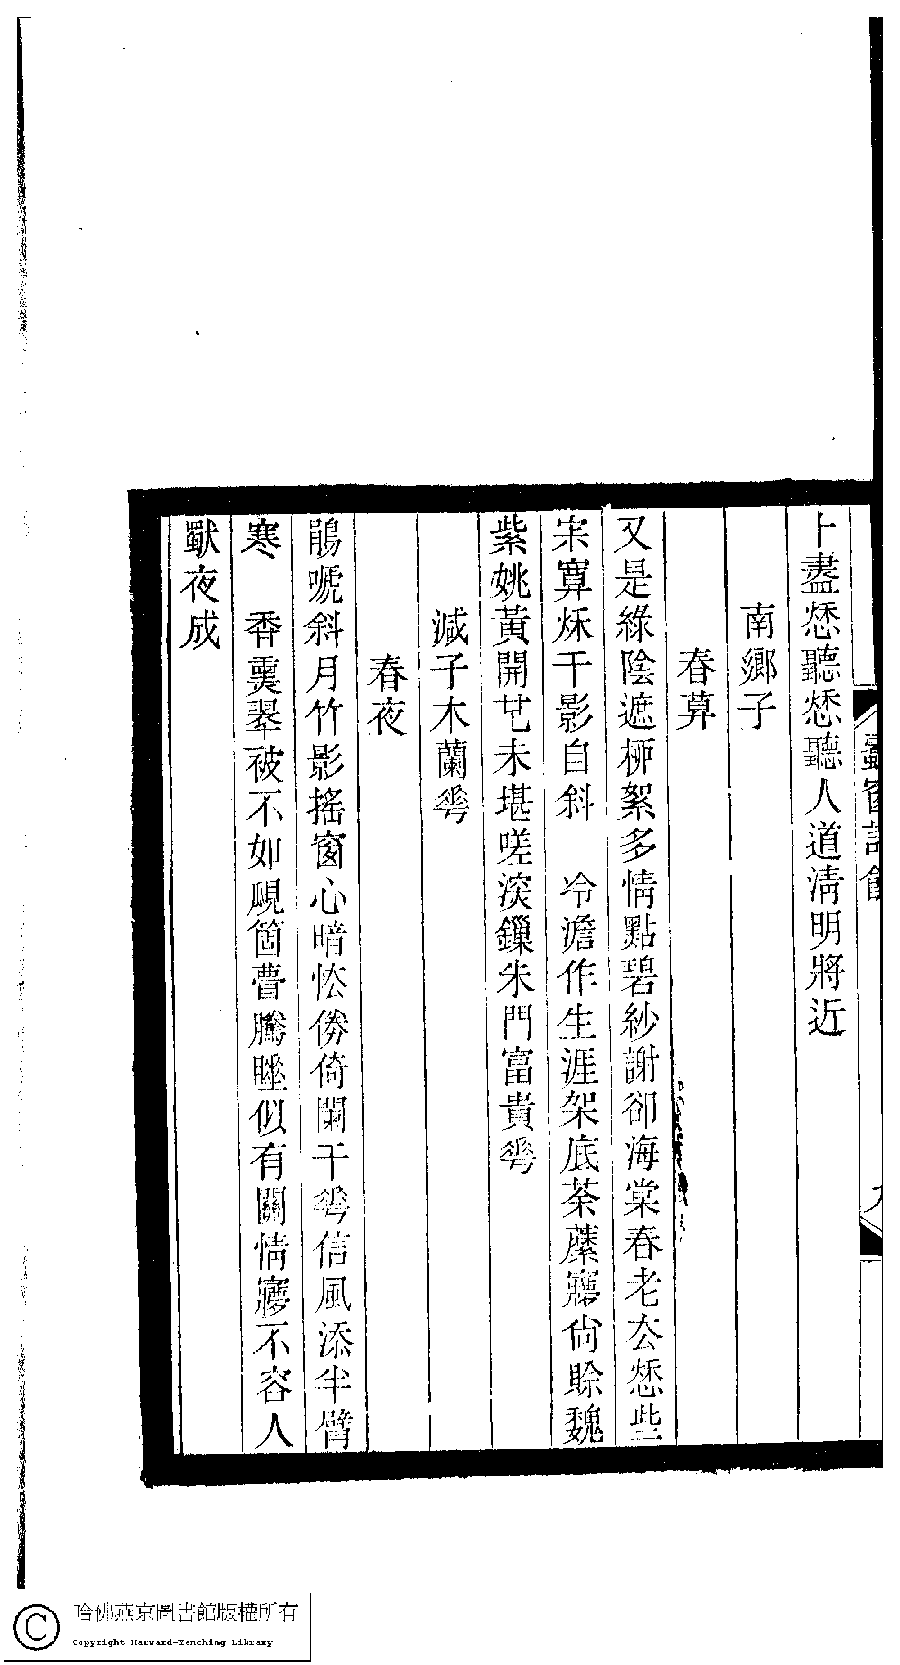 蠹窗詩餘
上盡愁聽愁聽人道清明將近
南鄉子
春暮
又是綠陰遮栁絮多情點碧紗謝卻海棠春老去愁些
宋寞秌千影自斜　冷澹作生涯架底荼蘼寱尚賒魏
紫姚黃開也未堪嗟深鎖朱門富貴花
減子木蘭花
春夜
鵑嗁斜月竹影搖窗心暗怯傍倚闌干花信風添半臂
寒　香熏翠被不如覷箇瞢騰睡似有關情寱不容人
猒夜成
哈佛燕京圖書館版權所有
Copyright Harvard-Yenching Library